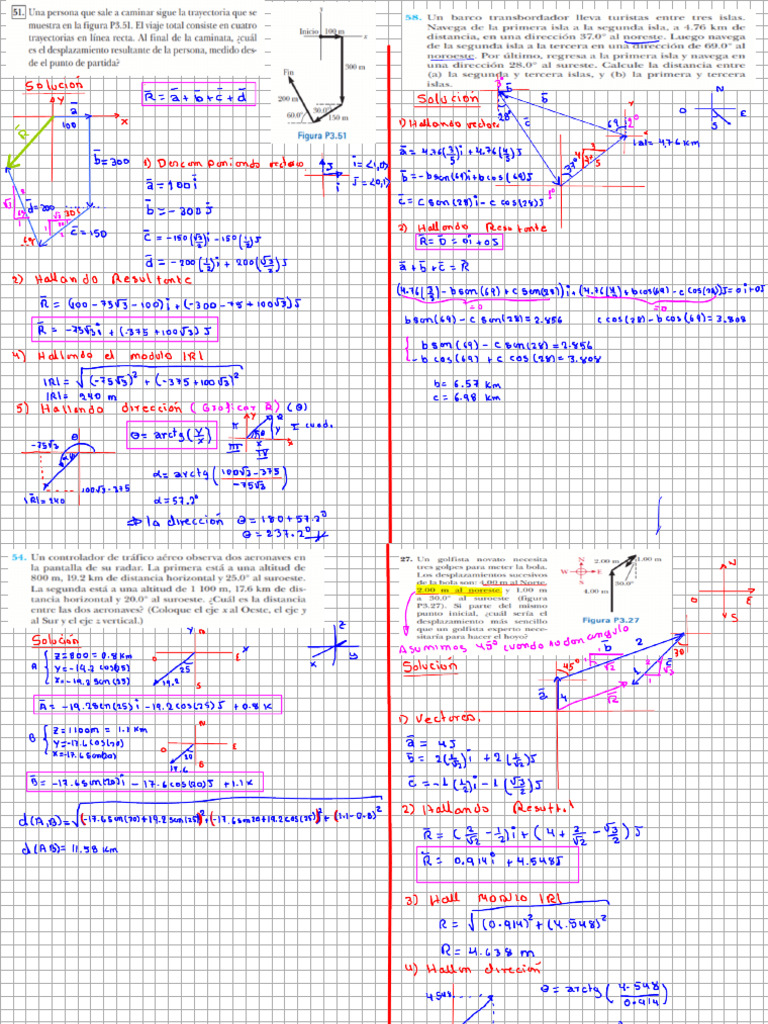 51. Una persona que sale a caminar sigue la trayectoria que se
muestra en la figura P3.51. El viaje total consiste en cuatro
trayectorias en línea recta. Al final de la caminata, ¿cuál
es el desplazamiento resultante de la persona, medido des-
de el punto de partida?
Inicio 100 m
300 m
Fin
200 m
60.0°
30.0°
150 m
Figura P3.51
Solución
R = a + b + c + d
y
x
a
100
R
b=300
d=200
30°
c=150
1) Descomponiendo vectores
i = <1,0>
J = <0,1>
a = 100 i
b = -300 J
c = -150(√3/2)i - 150(1/2)J
d = -200(1/2)i + 200(√3/2)J
2) Hallando Resultante
R = (100-75√3-100)i + (-300-75+100√3)J
R = -75√3 i + (-375+100√3) J
4) Hallando el modulo |R|
|R| = √((-75√3)² + (-375+100√3)²)
|R| = 240 m
5) Hallando dirección (Graficar R) (θ)
θ = arctg(y/x)
I cuad.
-75√3
θ
α
100√3-375
|R|=240
α = arctg(100√3-375/-75√3)
α = 57.2°
⇒ la dirección θ = 180+57.2°
θ = 237.2°
58. Un barco transbordador lleva turistas entre tres islas.
Navega de la primera isla a la segunda isla, a 4.76 km de
distancia, en una dirección 37.0° al noreste. Luego navega
de la segunda isla a la tercera en una dirección de 69.0° al
noroeste. Por último, regresa a la primera isla y navega en
una dirección 28.0° al sureste. Calcule la distancia entre
(a) la segunda y tercera islas, y (b) la primera y tercera
islas.
Solución
3°
b
28°
c
69
2°
|a|=4.76 km
37°
1°
N
E
S
O
1) Hallando vector
a = 4.76(3/5)i + 4.76(4/5)J
b = -b sen(69)i + b cos(69)J
c = c sen(28)i - c cos(28)J
2) Hallando Resultante
R = 0 = 0i + 0J
a + b + c = R
(4.76(3/5) - b sen(69) + c sen(28))i + (4.76(4/5) + b cos(69) - c cos(28))J = 0i + 0J
=0
=0
b sen(69) - c sen(28) = 2.856
c cos(28) - b cos(69) = 3.808
b sen(69) - c sen(28) = 2.856
-b cos(69) + c cos(28) = 3.808
b = 6.57 km
c = 6.98 km
54. Un controlador de tráfico aéreo observa dos aeronaves en
la pantalla de su radar. La primera está a una altitud de
800 m, 19.2 km de distancia horizontal y 25.0° al suroeste.
La segunda está a una altitud de 1 100 m, 17.6 km de dis-
tancia horizontal y 20.0° al suroeste. ¿Cuál es la distancia
entre las dos aeronaves? (Coloque el eje x al Oeste, el eje y
al Sur y el eje z vertical.)
Solución
A
z=800 = 0.8 km
y=-19.2 cos(25)
x=-19.2 sen(25)
25
19.2
A = -19.2sen(25)i - 19.2cos(25)J + 0.8 K
B
z=1100m = 1.1 km
y=-17.6 cos(20)
x=-17.6sen(20)
20
17.6
B = -17.6sen(20)i - 17.6cos(20)J + 1.1K
d(A,B) = √((-17.6sen(20)+19.2sen(25))² + (-17.6cos20+19.2cos(25))² + (1.1-0.8)²)
d(A,B) = 11.58 km
27. Un golfista novato necesita
tres golpes para meter la bola.
Los desplazamientos sucesivos
de la bola son: 4.00 m al Norte,
2.00 m al noreste, y 1.00 m
a 30.0° al suroeste (figura
P3.27). Si parte del mismo
punto inicial, ¿cuál sería el
desplazamiento más sencillo
que un golfista experto nece-
sitaría para hacer el hoyo?
2.00 m
1.00 m
30.0°
4.00 m
Figura P3.27
Asumimos 45° cuando no dan angulo
Solución
45°
2
b
√2
30
a
4
1) Vectores.
a = 4J
b = 2(1/√2)i + 2(1/√2)J
c = -1(1/2)i - 1(√3/2)J
2) Hallando Result.
R = (2/√2 - 1/2)i + (4 + 2/√2 - √3/2)J
R = 0.914i + 4.548J
3) Hall MODULO |R|
R = √((0.914)² + (4.548)²)
R = 4.638 m
4) Hallan dirección
4.548
θ = arctg(4.548/0.914)